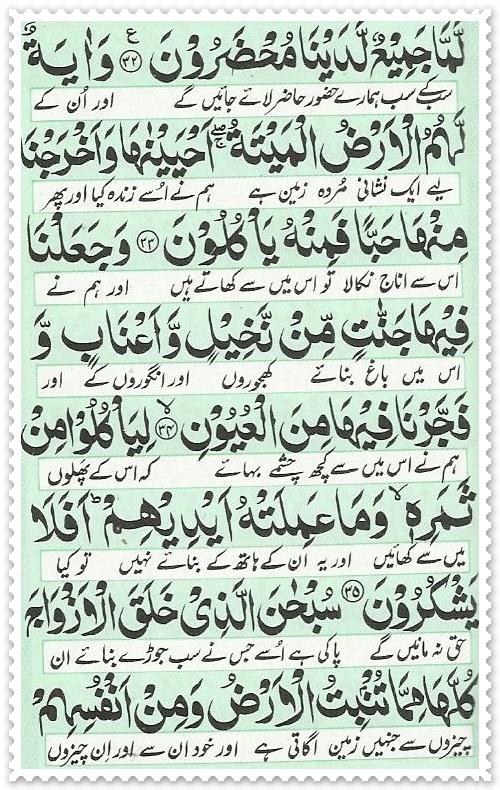 لَّمَّا جَمِیْعٌ لَّدَیْنَا مُحْضَرُوْنَ ﴿۳۲﴾ ع وَاٰیَةٌ
سب کے سب ہمارے حضور حاضر لائے جائیں گے اور اُن کے
لَّهُمُ الْاَرْضُ الْمَیْتَةُ ۖۚ اَحْیَیْنٰهَا وَاَخْرَجْنَا
لیے ایک نشانی مُردہ زمین ہے ہم نے اُسے زندہ کیا اور پھر
مِنْهَا حَبًّا فَمِنْهُ یَاْكُلُوْنَ ﴿۳۳﴾ وَجَعَلْنَا
اس سے اناج نکالا تو اس میں سے کھاتے ہیں اور ہم نے
فِیْهَا جَنّٰتٍ مِّنْ نَّخِیْلٍ وَّاَعْنَابٍ وَّ
اس میں باغ بنائے کھجوروں اور انگوروں کے اور
فَجَّرْنَا فِیْهَا مِنَ الْعُیُوْنِ ﴿۳۴﴾ۙ لِیَاْكُلُوْا مِنْ
ہم نے اس میں سے کچھ چشمے بہائے کہ اس کے پھلوں
ثَمَرِهٖ ۙ وَمَا عَمِلَتْهُ اَیْدِیْهِمْ ؕ اَفَلَا
میں سے کھائیں اور یہ اُن کے ہاتھ کے بنائے نہیں تو کیا
یَشْكُرُوْنَ ﴿۳۵﴾ سُبْحٰنَ الَّذِیْ خَلَقَ الْاَزْوَاجَ
حق نہ مانیں گے پاکی ہے اُسے جس نے سب جوڑے بنائے ان
كُلَّهَا مِمَّا تُنْۢبِتُ الْاَرْضُ وَمِنْ اَنْفُسِهِمْ
چیزوں سے جنہیں زمین اگاتی ہے اور خود ان سے اور اِن چیزوں